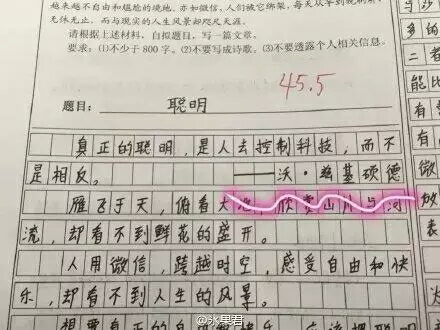 越来越不自由和尴尬的境地。亦如微信,人们被它绑架,每天从早到晚
无休无止。而与现实的人生风景却咫尺天涯。
请根据上述材料,自拟题目,写一篇文章。
要求:(1)不少于800字。(2)不要写成诗歌。(3)不要透露个人相关信息。
45.5
题目: 聪明
真正的聪明,是人去控制科技,而不
是相反。 ——沃·兹基硕德
雁飞于天,俯看大地,欣赏山川与河
流,却看不到鲜花的盛开。
人用微信,跨越时空,感受自由和快
乐,却看不到人生的风景。
想要真正的聪明
多的
二者
能比
有
有
微
够
表
@水果君